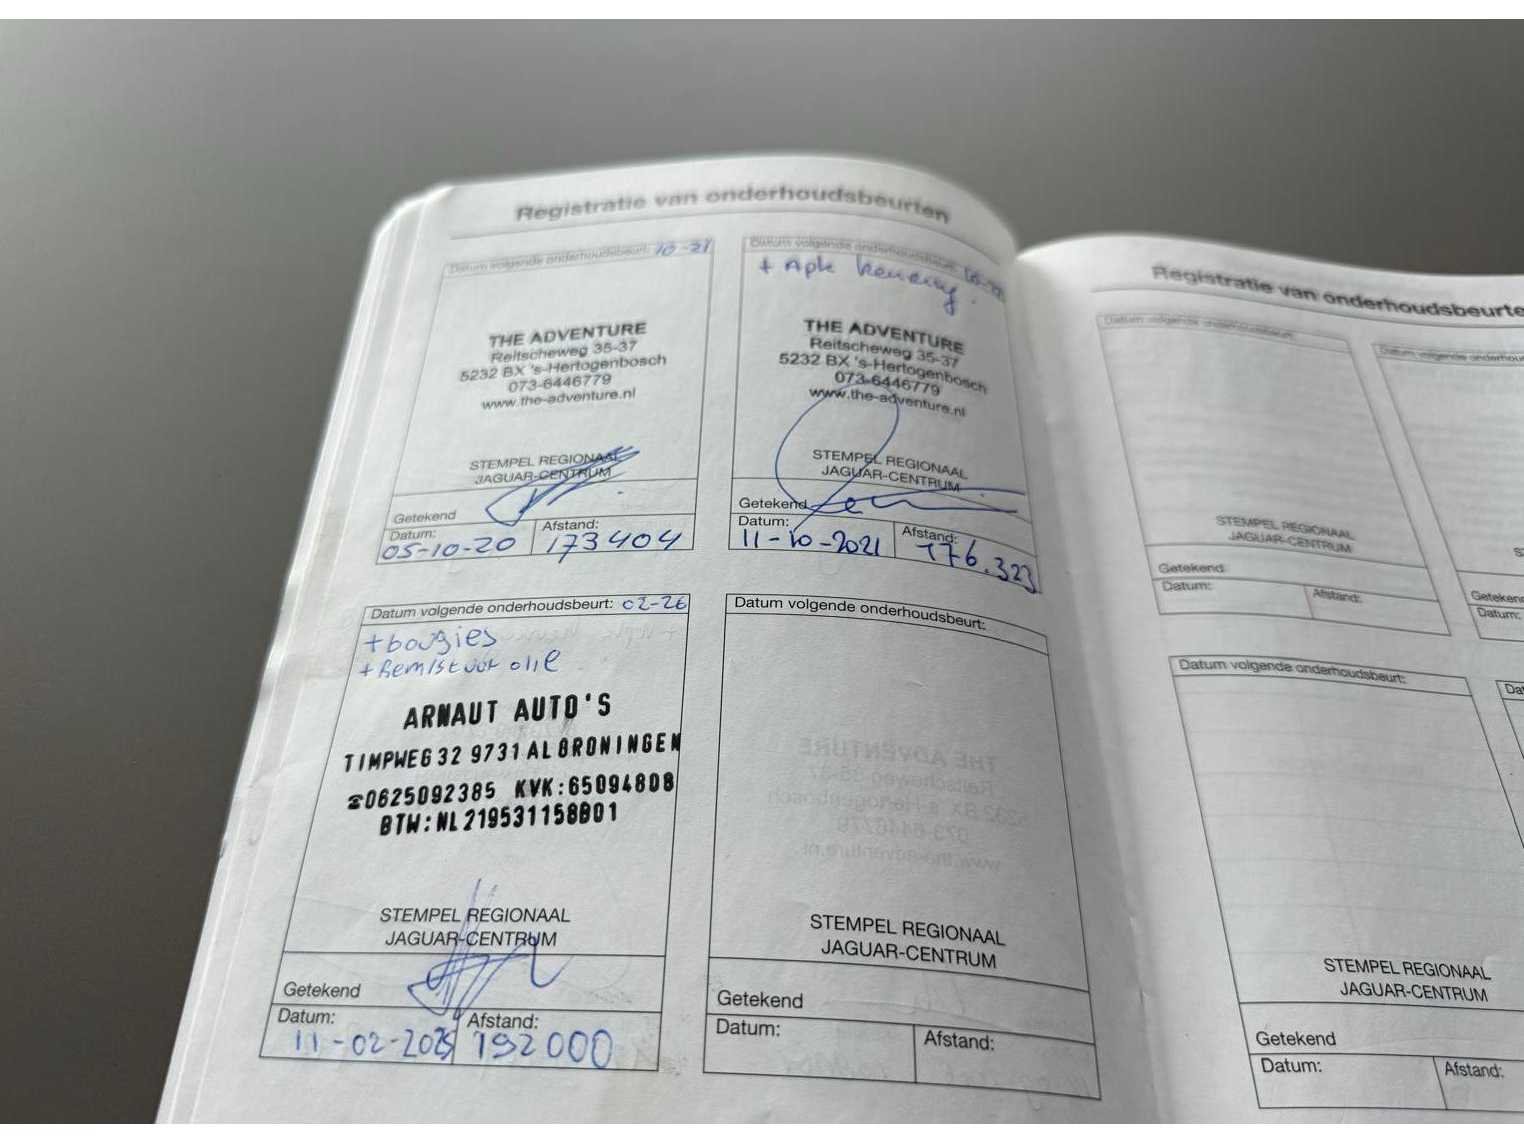 Registratie van onderhoudsbeurten
Datum volgende onderhoudsbeurt: 10-21
THE ADVENTURE
Reitscheweg 35-37
5232 BX 's-Hertogenbosch
073-6446779
www.the-adventure.nl
STEMPEL REGIONAAL
JAGUAR-CENTRUM
Getekend
Datum: Afstand:
05-10-20 173404
Datum volgende onderhoudsbeurt:
+ Apk keuring.
THE ADVENTURE
Reitscheweg 35-37
5232 BX 's-Hertogenbosch
073-6446779
www.the-adventure.nl
STEMPEL REGIONAAL
JAGUAR-CENTRUM
Getekend
Datum: Afstand:
11-10-2021 176.323
Datum volgende onderhoudsbeurt: 02-26
+bougies
+Remistuur olie
ARNAUT AUTO'S
TIMPWEG 32 9731 AL GRONINGEN
☎0625092385 KVK:65094808
BTW:NL219531158B01
STEMPEL REGIONAAL
JAGUAR-CENTRUM
Getekend
Datum: Afstand:
11-02-2025 192000
Datum volgende onderhoudsbeurt:
STEMPEL REGIONAAL
JAGUAR-CENTRUM
Getekend
Datum: Afstand:
Registratie van onderhoudsbeurte
Datum volgende onderhoudsbeurt:
STEMPEL REGIONAAL
JAGUAR-CENTRUM
Getekend
Datum: Afstand:
Datum volgende onderhoudsbeurt:
STEMPEL REGIONAAL
JAGUAR-CENTRUM
Getekend
Datum: Afstand:
Datum volgende
Getekend
Datum: